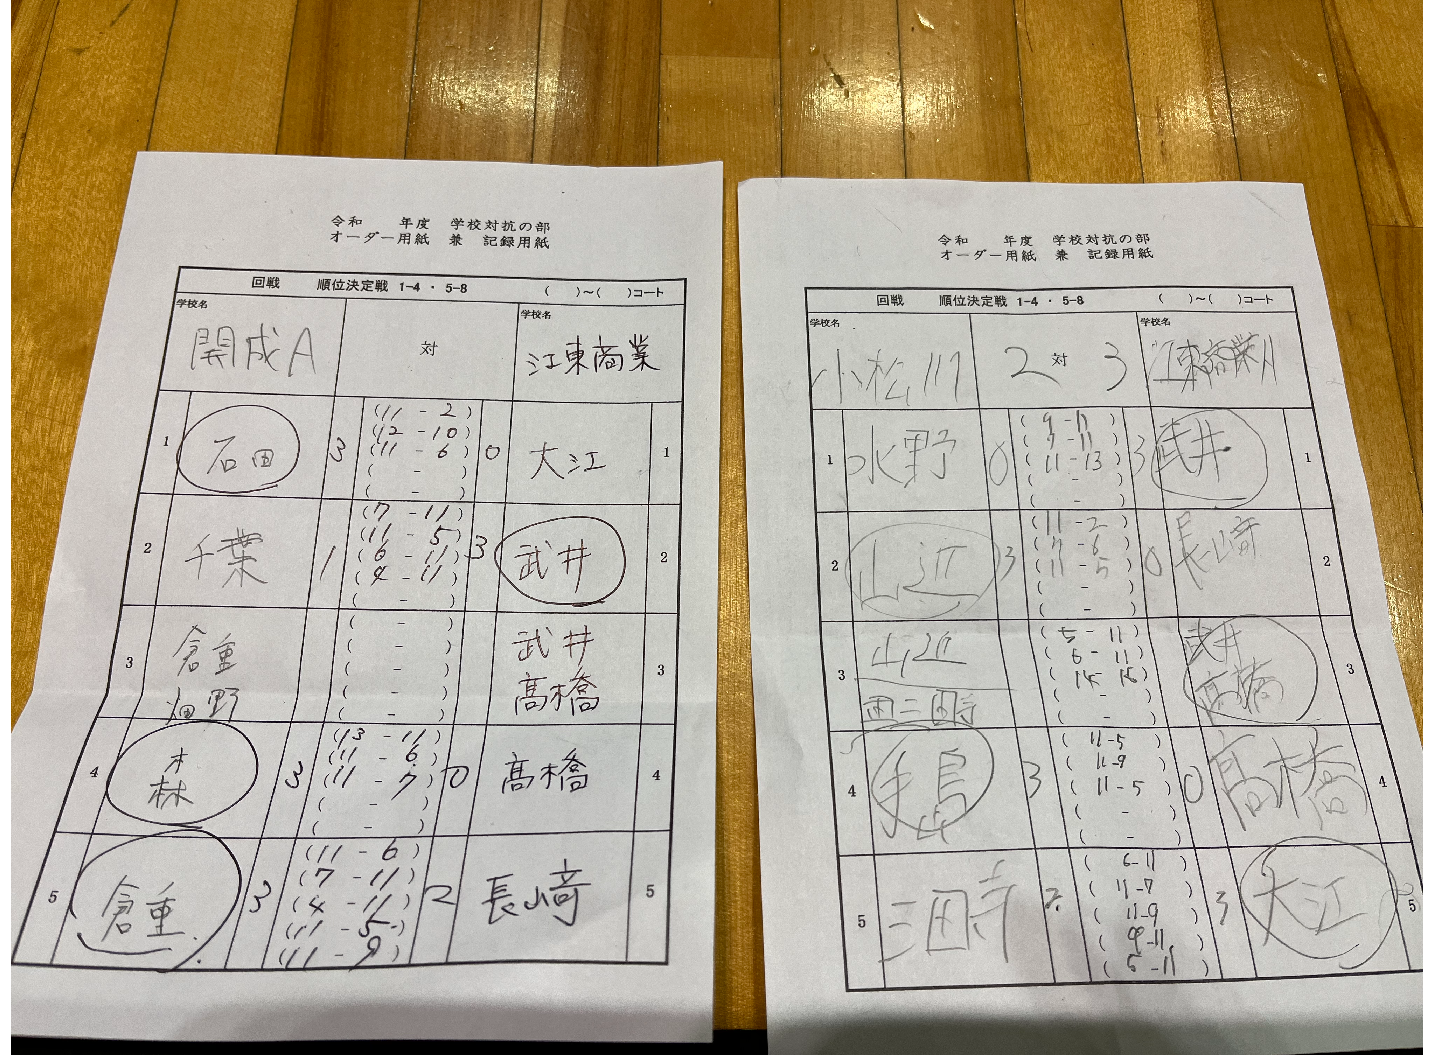 令和　　年度　学校対抗の部
オーダー用紙　兼　記録用紙
回戦　順位決定戦 1-4 ・ 5-8　(　)～(　)コート
学校名　学校名
開成A　対　江東商業
1　石田　3　(11 - 2)　0　大江　1
(12 - 10)
(11 - 6)
( - )
( - )
2　千葉　1　(7 - 11)　3　武井　2
(11 - 5)
(6 - 11)
(4 - 11)
( - )
3　倉重　( - )　武井　3
畑野　( - )　髙橋
( - )
( - )
( - )
4　森　3　(13 - 11)　0　髙橋　4
(11 - 6)
(11 - 7)
( - )
( - )
5　倉重　3　(11 - 6)　2　長﨑　5
(7 - 11)
(4 - 11)
(11 - 5)
(11 - 9)
令和　　年度　学校対抗の部
オーダー用紙　兼　記録用紙
回戦　順位決定戦 1-4 ・ 5-8　(　)～(　)コート
学校名　学校名
小松川　2　対　3　江東商業
1　水野　0　(9 - 11)　3　武井　1
(9 - 11)
(11 - 13)
( - )
( - )
2　山辺　3　(11 - 2)　0　長﨑　2
(11 - 6)
(11 - 5)
( - )
( - )
3　山辺　(5 - 11)　武井　3
(6 - 11)　髙橋
( - )
( - )
4　手島　3　(11-5)　0　髙橋　4
(11-9)
(11-5)
( - )
( - )
5　三田寺　2　(6-11)　3　大江　5
(11-7)
(11-9)
(9-11)
(5-11)